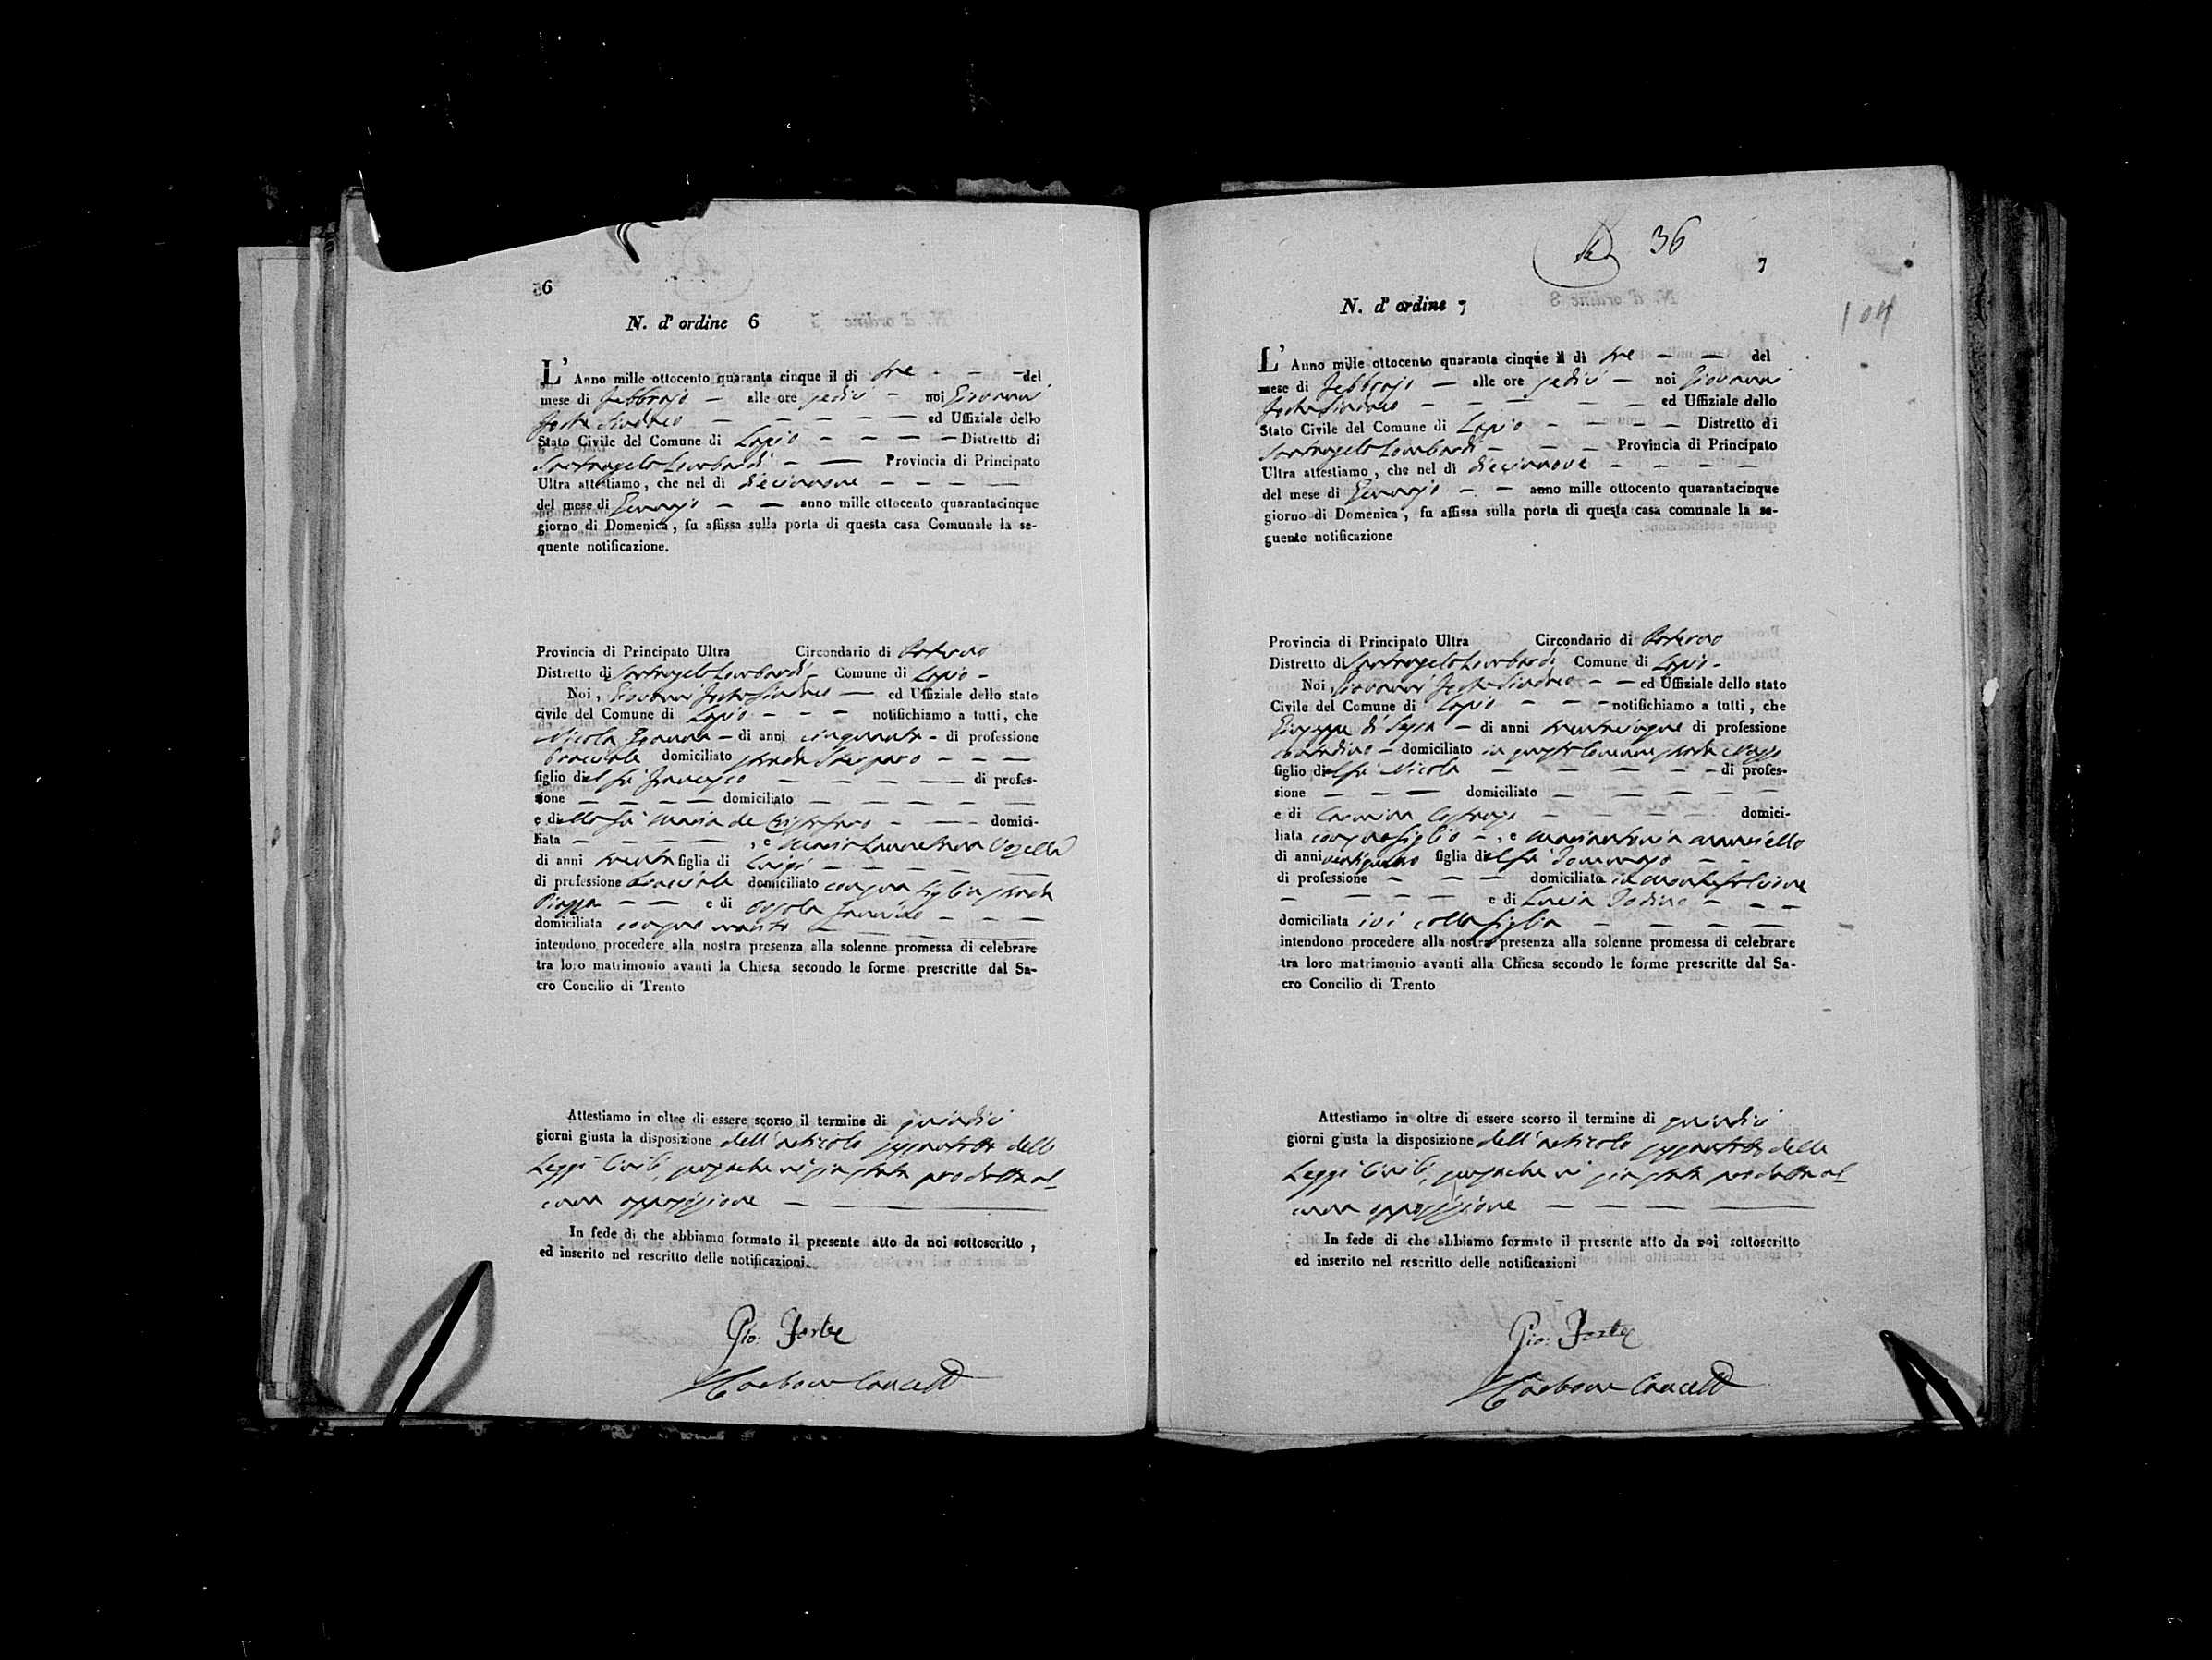 6
N. d' ordine 6
L' Anno mille ottocento quaranta cinque il di tre - - - del
mese di Febbrajo - alle ore sedici - noi Giovanni
Forte Sindaco - - - - - - ed Uffiziale dello
Stato Civile del Comune di Lapio - - - - Distretto di
Santangelo Lombardi - - Provincia di Principato
Ultra attestiamo, che nel di diecinnove - - - -
del mese di Gennajo - - anno mille ottocento quarantacinque
giorno di Domenica, fu affissa sulla porta di questa casa Comunale la se-
quente notificazione.
Provincia di Principato Ultra Circondario di Paterno
Distretto di Santangelo Lombardi - Comune di Lapio -
Noi, Giovanni Forte Sindaco - ed Uffiziale dello stato
civile del Comune di Lapio - - - notifichiamo a tutti, che
Nicola - di anni cinquanta - di professione
bracciale domiciliato strada - - -
figlio del fu Francesco - - - - - di profes-
sione - - - - domiciliato - - - - - -
e della fu Maria de Cristofaro - - - domici-
liata - - - - , e Maria
di anni trenta figlia di Luigi - - - - -
di professione bracciale domiciliato con sua figlia strada
Piazza - - e di Orsola - - -
domiciliata con suo marito - - - - -
intendono procedere alla nostra presenza alla solenne promessa di celebrare
tra loro matrimonio avanti la Chiesa secondo le forme prescritte dal Sa-
cro Concilio di Trento
Attestiamo in oltre di essere scorso il termine di quindici
giorni giusta la disposizione dell'articolo delle
Leggi Civili, senza che vi sia stata prodotta al-
cuna opposizione - - - -
In fede di che abbiamo formato il presente atto da noi sottoscritto,
ed inserito nel rescritto delle notificazioni.
Gio: Forte
Carbone Cancell
36
7
104
N. d' ordine 7
L' Anno mille ottocento quaranta cinque il di tre - - del
mese di Febbrajo - alle ore sedici - noi Giovanni
Forte Sindaco - - - - - - ed Uffiziale dello
Stato Civile del Comune di Lapio - - - - Distretto di
Santangelo Lombardi - - - Provincia di Principato
Ultra attestiamo, che nel di diecinnove - - - -
del mese di Gennajo - - anno mille ottocento quarantacinque
giorno di Domenica, fu affissa sulla porta di questa casa comunale la se-
guente notificazione
Provincia di Principato Ultra Circondario di Paterno
Distretto di Santangelo Lombardi Comune di Lapio -
Noi, Giovanni Forte Sindaco - - ed Uffiziale dello stato
Civile del Comune di Lapio - - - notifichiamo a tutti, che
Giuseppe di - di anni trentacinque di professione
contadino - domiciliato in questo Comune strada
figlio del fu Nicola - - - - - - di profes-
sione - - - domiciliato - - - - -
e di Carmina - - - - - domici-
liata con suo figlio - , e Mariantonia
di anni ventiquattro figlia del fu Tommaso - -
di professione - - - domiciliata in Montefalcione
- - - - e di Lucia Iodino - - -
domiciliata ivi colla figlia - - - - -
intendono procedere alla nostra presenza alla solenne promessa di celebrare
tra loro matrimonio avanti alla Chiesa secondo le forme prescritte dal Sa-
cro Concilio di Trento
Attestiamo in oltre di essere scorso il termine di quindici
giorni giusta la disposizione dell'articolo delle
Leggi Civili, senza che vi sia stata prodotta al-
cuna opposizione - - - -
In fede di che abbiamo formato il presente atto da noi sottoscritto
ed inserito nel rescritto delle notificazioni
Gio: Forte
Carbone Cancell